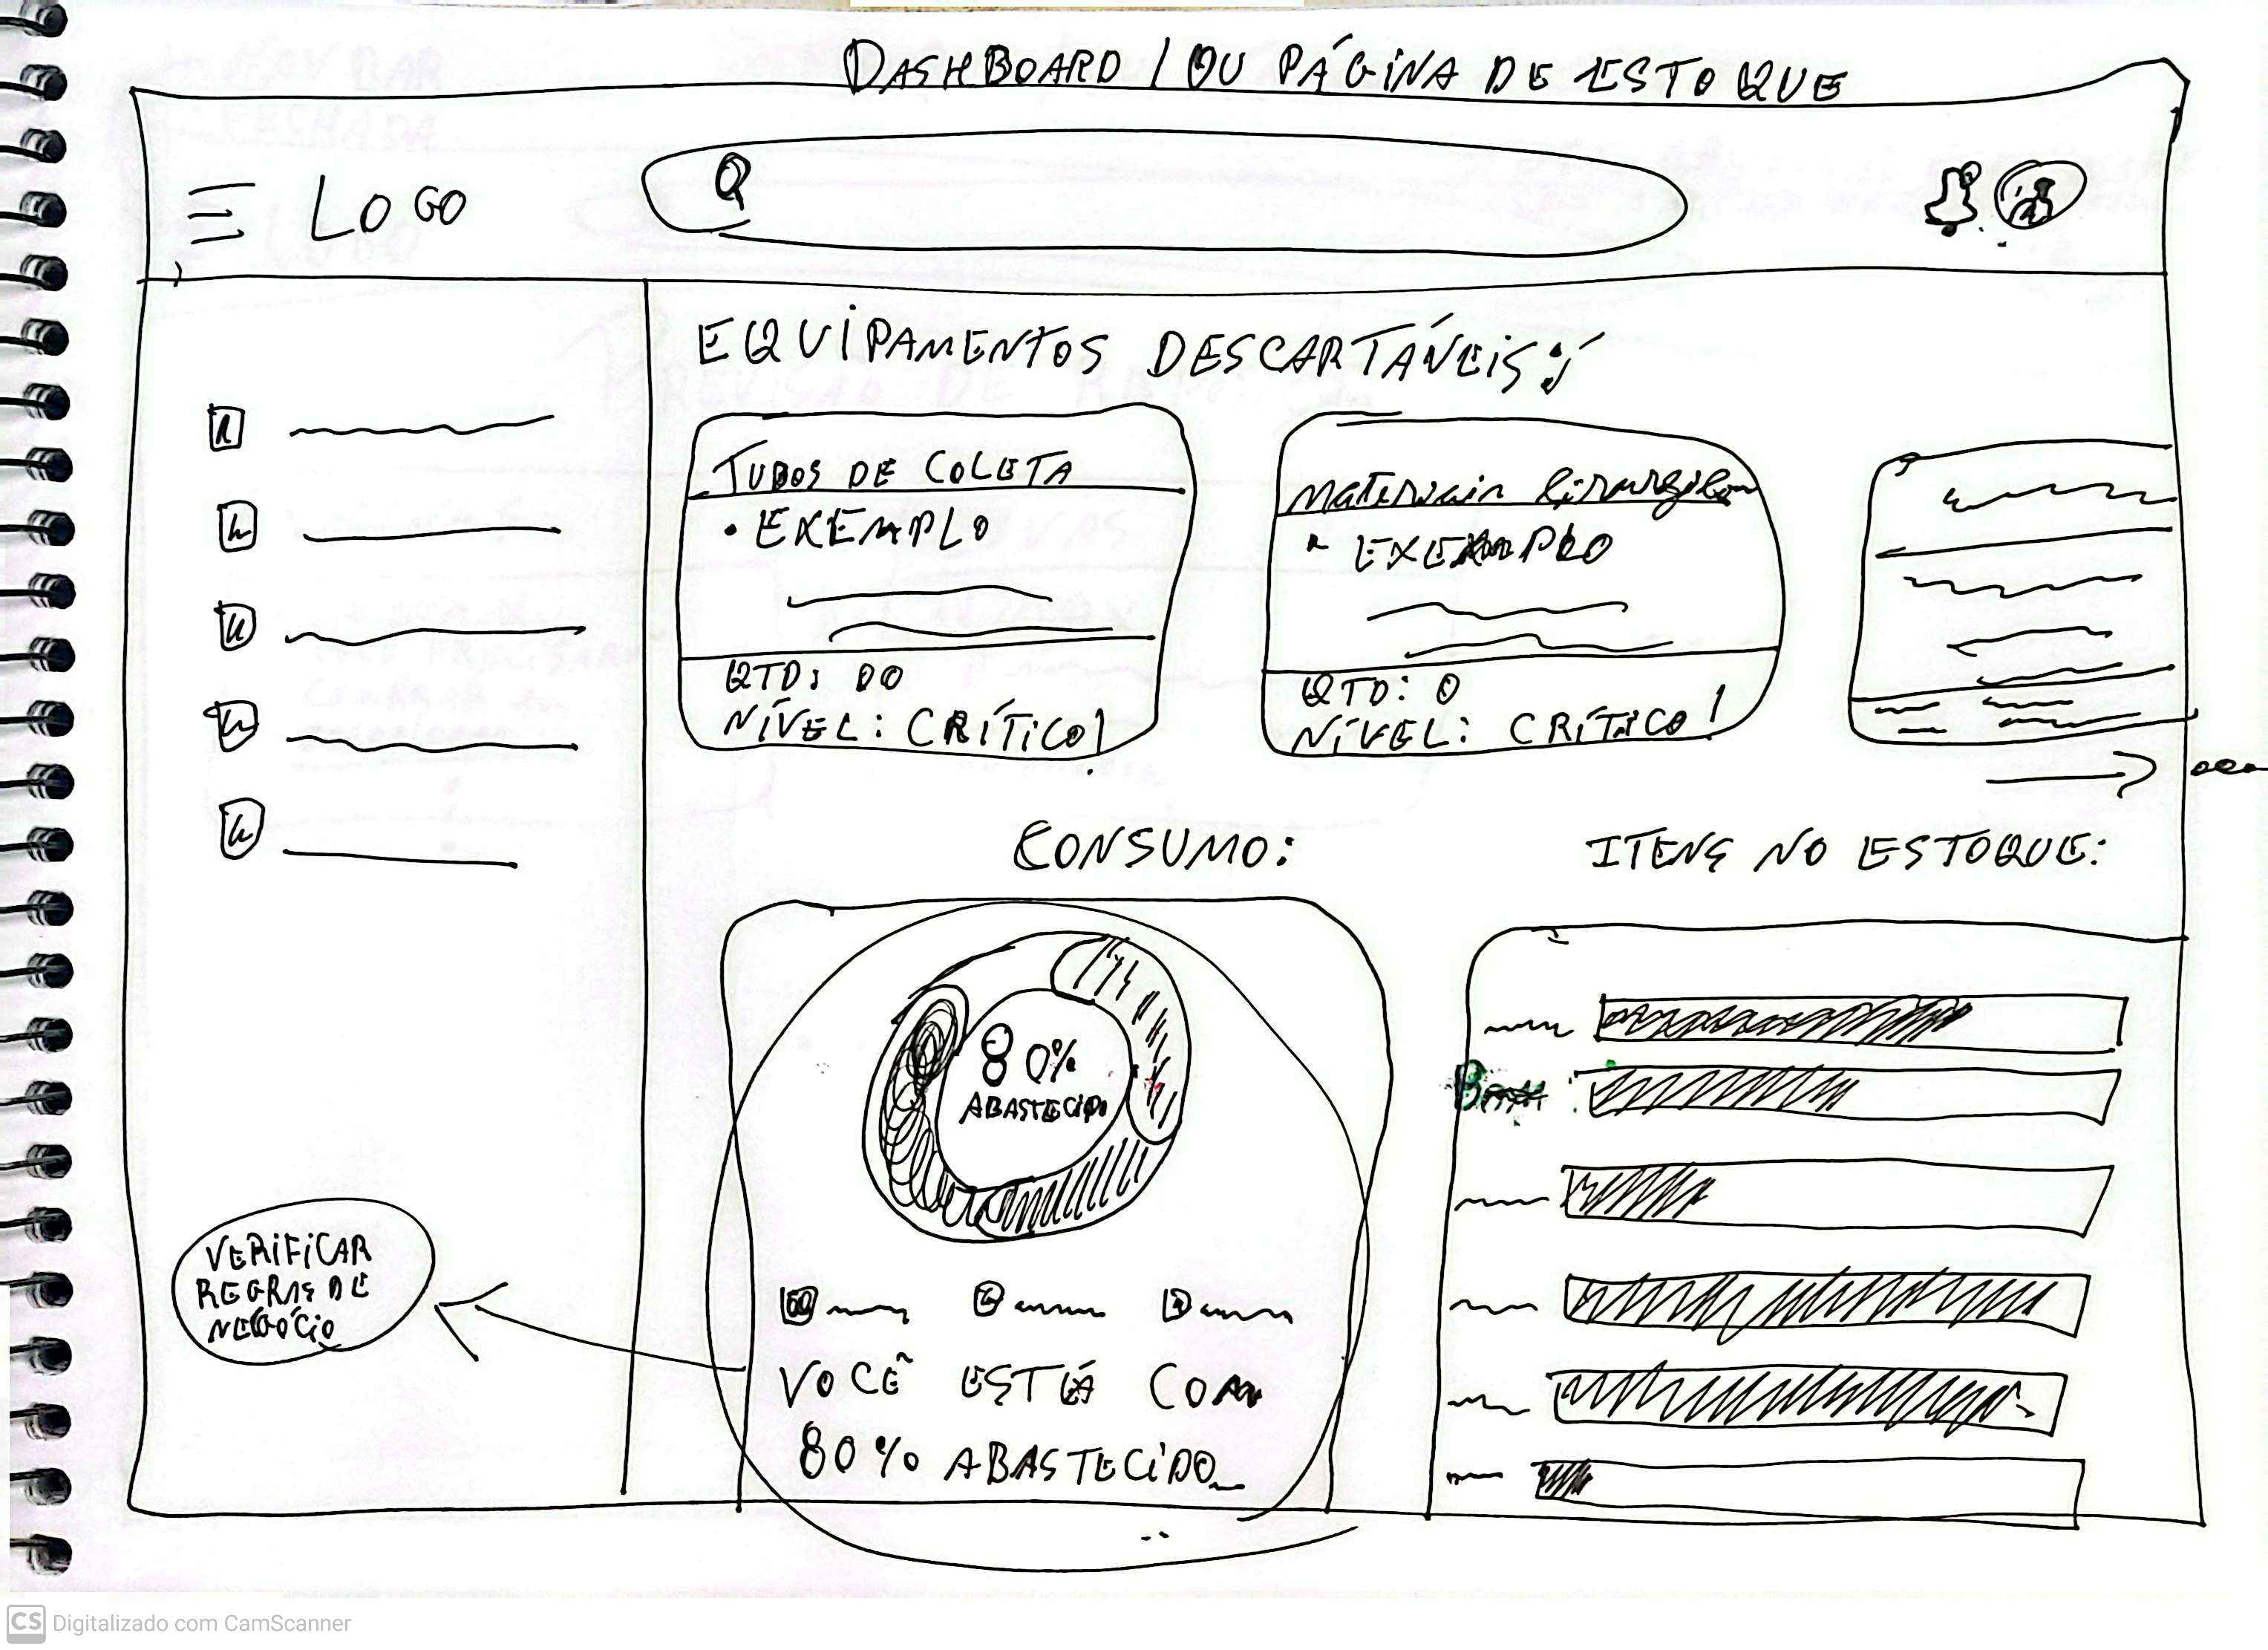 DASHBOARD / OU PÁGINA DE ESTOQUE
LOGO
EQUIPAMENTOS DESCARTÁVEIS:
TUBOS DE COLETA
• EXEMPLO
QTD: 00
NÍVEL: CRÍTICO!
Materiais Cirurgicos
• EXEMPLO
QTD: 0
NÍVEL: CRÍTICO!
CONSUMO:
80%
ABASTECIDO
VOCÊ ESTÁ COM
80% ABASTECIDO
ITENS NO ESTOQUE:
VERIFICAR
REGRAS DE
NEGÓCIO
CS Digitalizado com CamScanner